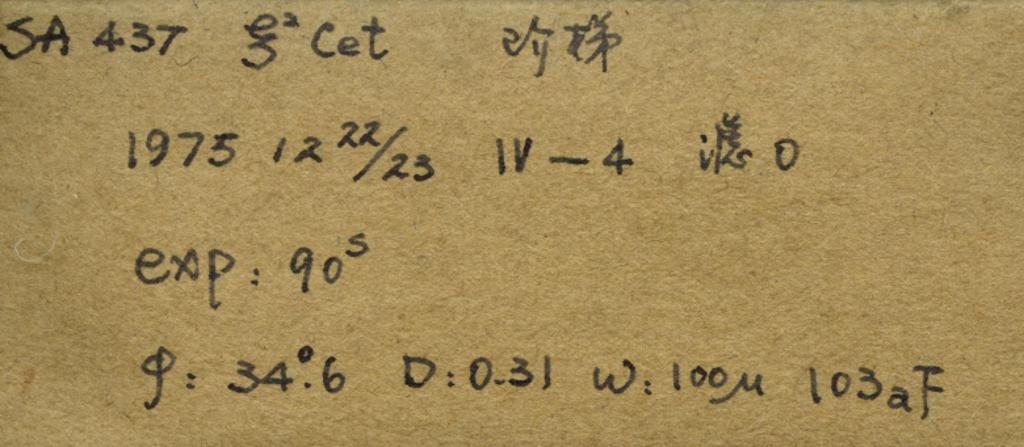 SA 437 ξ² Cet 阶梯
1975 12 22/23 IV-4 滤 0
exp: 90ˢ
φ: 34°.6 D: 0.31 W: 100μ 103aF